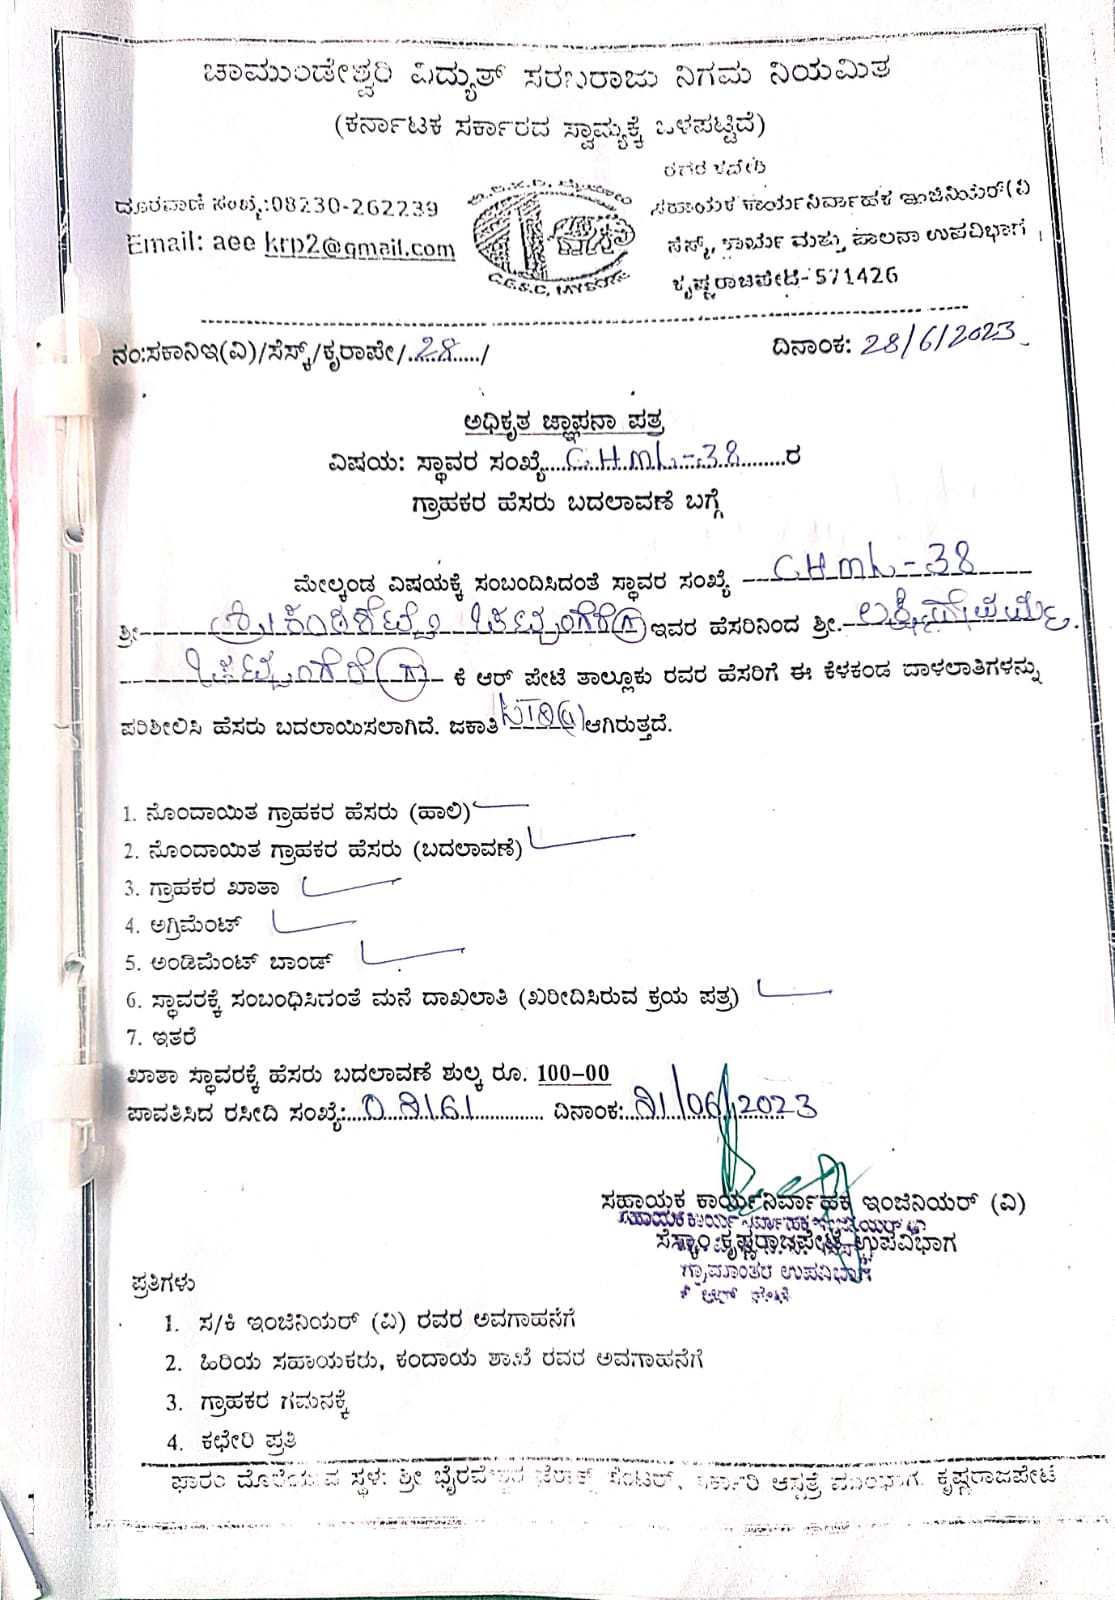 ಚಾಮುಂಡೇಶ್ವರಿ ವಿದ್ಯುತ್ ಸರಬರಾಜು ನಿಗಮ ನಿಯಮಿತ
(ಕರ್ನಾಟಕ ಸರ್ಕಾರದ ಸ್ವಾಮ್ಯಕ್ಕೆ ಒಳಪಟ್ಟಿದೆ)
ದೂರವಾಣಿ ಸಂಖ್ಯೆ:08230-262239
Email: aee krp2@gmail.com
C.E.S.C, MYSORE
ಸಹಾಯಕ ಕಾರ್ಯನಿರ್ವಾಹಕ ಇಂಜಿನಿಯರ್(ವಿ
ಸೆಸ್ಕ್, ಕಾರ್ಯ ಮತ್ತು ಪಾಲನಾ ಉಪವಿಭಾಗ
ಕೃಷ್ಣರಾಜಪೇಟೆ-571426
ನಂ:ಸಕಾನಿಇ(ವಿ)/ಸೆಸ್ಕ್/ಕೃರಾಪೇ/..28...../
ದಿನಾಂಕ: 28/6/2023
ಅಧಿಕೃತ ಜ್ಞಾಪನಾ ಪತ್ರ
ವಿಷಯ: ಸ್ಥಾವರ ಸಂಖ್ಯೆ....CHML-38........ರ
ಗ್ರಾಹಕರ ಹೆಸರು ಬದಲಾವಣೆ ಬಗ್ಗೆ
ಮೇಲ್ಕಂಡ ವಿಷಯಕ್ಕೆ ಸಂಬಂದಿಸಿದಂತೆ ಸ್ಥಾವರ ಸಂಖ್ಯೆ CHML-38
ಶ್ರೀ ಇವರ ಹೆಸರಿನಿಂದ ಶ್ರೀ.
ಕೆ ಆರ್ ಪೇಟೆ ತಾಲ್ಲೂಕು ರವರ ಹೆಸರಿಗೆ ಈ ಕೆಳಕಂಡ ದಾಳಲಾತಿಗಳನ್ನು
ಪರಿಶೀಲಿಸಿ ಹೆಸರು ಬದಲಾಯಿಸಲಾಗಿದೆ. ಜಕಾತಿ ಆಗಿರುತ್ತದೆ.
1. ನೊಂದಾಯಿತ ಗ್ರಾಹಕರ ಹೆಸರು (ಹಾಲಿ)
2. ನೊಂದಾಯಿತ ಗ್ರಾಹಕರ ಹೆಸರು (ಬದಲಾವಣೆ)
3. ಗ್ರಾಹಕರ ಖಾತಾ
4. ಅಗ್ರಿಮೆಂಟ್
5. ಅಂಡಿಮೆಂಟ್ ಬಾಂಡ್
6. ಸ್ಥಾವರಕ್ಕೆ ಸಂಬಂಧಿಸಿದಂತೆ ಮನೆ ದಾಖಲಾತಿ (ಖರೀದಿಸಿರುವ ಕ್ರಯ ಪತ್ರ)
7. ಇತರೆ
ಖಾತಾ ಸ್ಥಾವರಕ್ಕೆ ಹೆಸರು ಬದಲಾವಣೆ ಶುಲ್ಕ ರೂ. 100-00
ಪಾವತಿಸಿದ ರಸೀದಿ ಸಂಖ್ಯೆ: ದಿನಾಂಕ: 21/06/2023
ಸಹಾಯಕ ಕಾರ್ಯನಿರ್ವಾಹಕ ಇಂಜಿನಿಯರ್ (ವಿ)
ಸೆಸ್ಕಾಂ ಕೃಷ್ಣರಾಜಪೇಟೆ ಉಪವಿಭಾಗ
ಗ್ರಾಮಾಂತರ ಉಪವಿಭಾಗ
ಪ್ರತಿಗಳು
1. ಸ/ಕಿ ಇಂಜಿನಿಯರ್ (ವಿ) ರವರ ಅವಗಾಹನೆಗೆ
2. ಹಿರಿಯ ಸಹಾಯಕರು, ಕಂದಾಯ ಶಾಖೆ ರವರ ಅವಗಾಹನೆಗೆ
3. ಗ್ರಾಹಕರ ಗಮನಕ್ಕೆ
4. ಕಛೇರಿ ಪ್ರತಿ
ಫಾರಂ ದೊರೆಯುವ ಸ್ಥಳ: ಶ್ರೀ ಆಸ್ಪತ್ರೆ ಮುಂಭಾಗ, ಕೃಷ್ಣರಾಜಪೇಟೆ